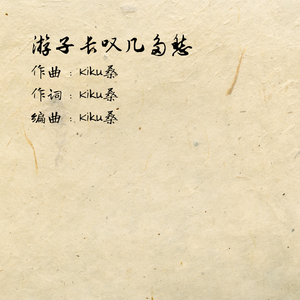 游子长叹几多愁
作曲：kiku桑
作词：kiku桑
编曲：kiku桑